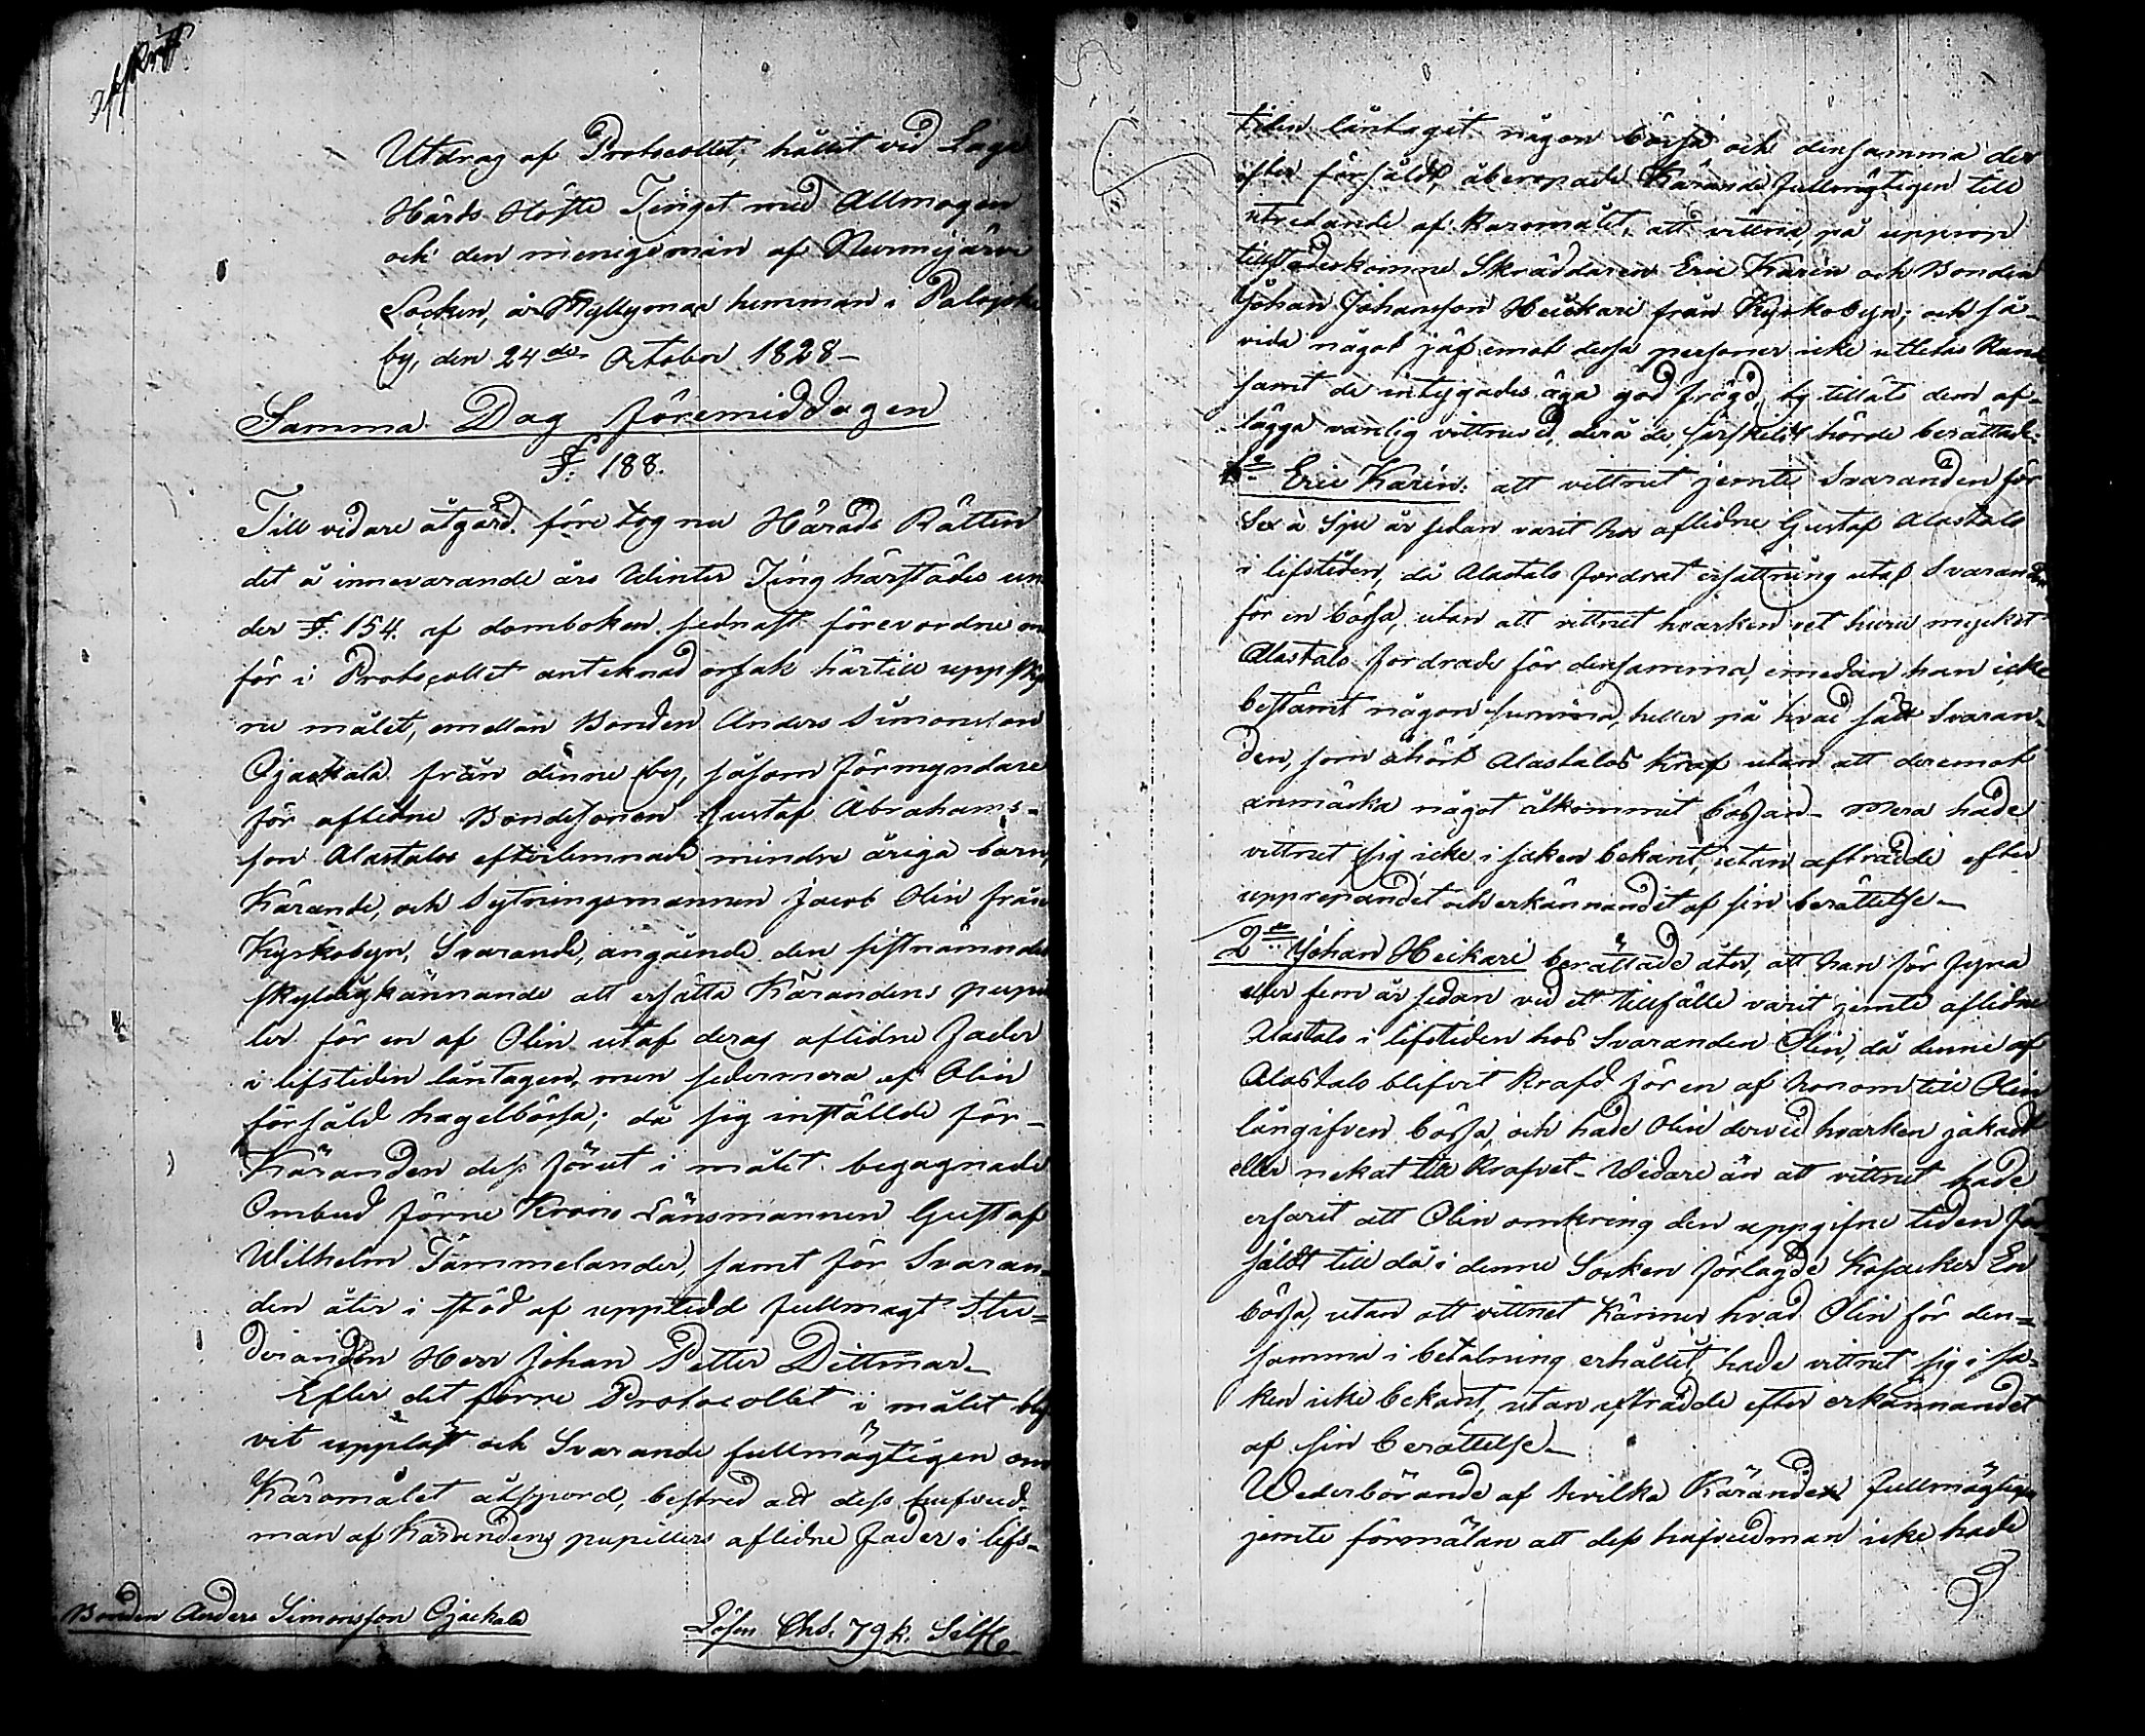 Afskrift
Utdrag af Protocollet, hållit vid Laga
Härds Höste Tinget med Allmogen
och den menigeman af Nurmijärvi
Socken, å Myllymaa hemman i Palojoki
by, den 24de October 1828—
Samma Dag förmiddagen
§. 188.
Till vidare åtgärd företog nu Härads Rätten
det å innevarande års Winter Ting härstädes un-
der §. 154. af domboken sednast förevordne om
för i Protocollet anteknad orsak härtill uppskjut
ne målet, emellan Bonden Anders Simonsson
Ojackala från denne by, såsom förmyndare
för aflidne Bondesonen Gustaf Abrahams-
son Alastalos efterlemnade mindre åriga barn,
Kärande, och Sytningsmannen Jacob Olin från
Kyrkobyn, Svarande, angående den sistnämndes
skyldigkännande att ersätta Kärandens pupil
ler för en af Olin utaf deras aflidne Fader
i lifstiden låntagen, men sedermera af Olin
försåld hagelbössa; då sig inställde för
Käranden dess förut i målet begagnade
Ombud förre Krono Länsmannen Gustaf
Wilhelm Tammelander, samt för Svaran-
den åter i stöd af uppteedd fullmagt Stu-
deranden Herr Johan Petter Dittmar.
Efter det förre Protocollet i målet blif
vit uppläst och Svarande fullmägtigen om
Käromålet åtspord, bestred att dess hufvud-
man af Kärandens pupillers aflidne Fader i lifs-
Bonden Anders Simonsson Ojackala
Lösen Chs. 79 k. Silf
tiden låntagit någon bössa och densamma der
efter försåldt, åberopade Kärande fullmägtigen till
utredande af Käromålet, att vittna, på upprop
tillstädeskomne Skräddaren Eric Karin och Bonden
Johan Johansson Heickari från Kyrkobyn; och så-
vida något jäf emot dessa personer icke utletas kunde
samt de intygades äga god frägd, ty tilläts dem af-
lägga vanlig vittnes ed, derå de, särskilt hörde berättade:
1o Eric Karin: att vittnet jemte Svaranden för
Sex à Sju år sedan varit hos aflidne Gustaf Alastalo
i lifstiden, då Alastalo fordrat ersättning utaf Svaranden
för en bössa, utan att vittnet hvarken vet huru mycket
Alastalo fordrade för densamma, emedan han icke
bestämt någon summa, heller på hvad sätt Svaran-
den, som åhört Alastalos kraf utan att deremot
anmärka något åtkommit bössan— Mera hade
vittnet sig icke i saken bekant, utan afträdde efter
upprepandet och erkännandet af sin berättelse—
2o Johan Heikari berättade åter, att han för fyra
eller fem år sedan vid ett tillfälle varit jemte aflidne
Alastalo i lifstiden hos Svaranden Olin, då denne af
Alastalo blifvit krafd för en af honom till Olin
långifven bössa, och hade Olin dervid hvarken jakadt
eller nekat till krafvet— Widare än att vittnet hade
erfarit att Olin omkring den uppgifne tiden för
såldt till då i denne Socken förlagde Kosacker En
bössa, utan att vittnet känner hvad Olin för den-
samma i betalning erhållit, hade vittnet sig i sa-
ken icke bekant, utan afträdde efter erkännandet
af sin berättelse—
Wederbörande af hvilka Kärande fullmägtigen
jemte förmälan att dess hufvudman icke hade